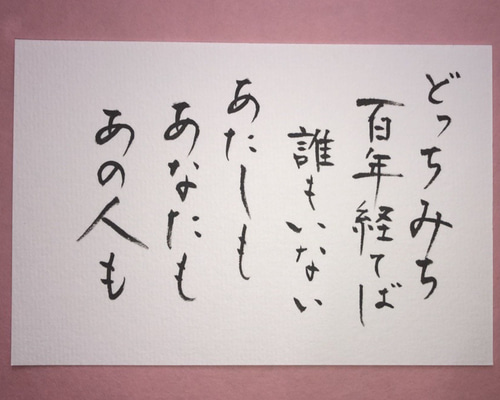 どっちみち
百年経てば
誰もいない
あたしも
あなたも
あの人も